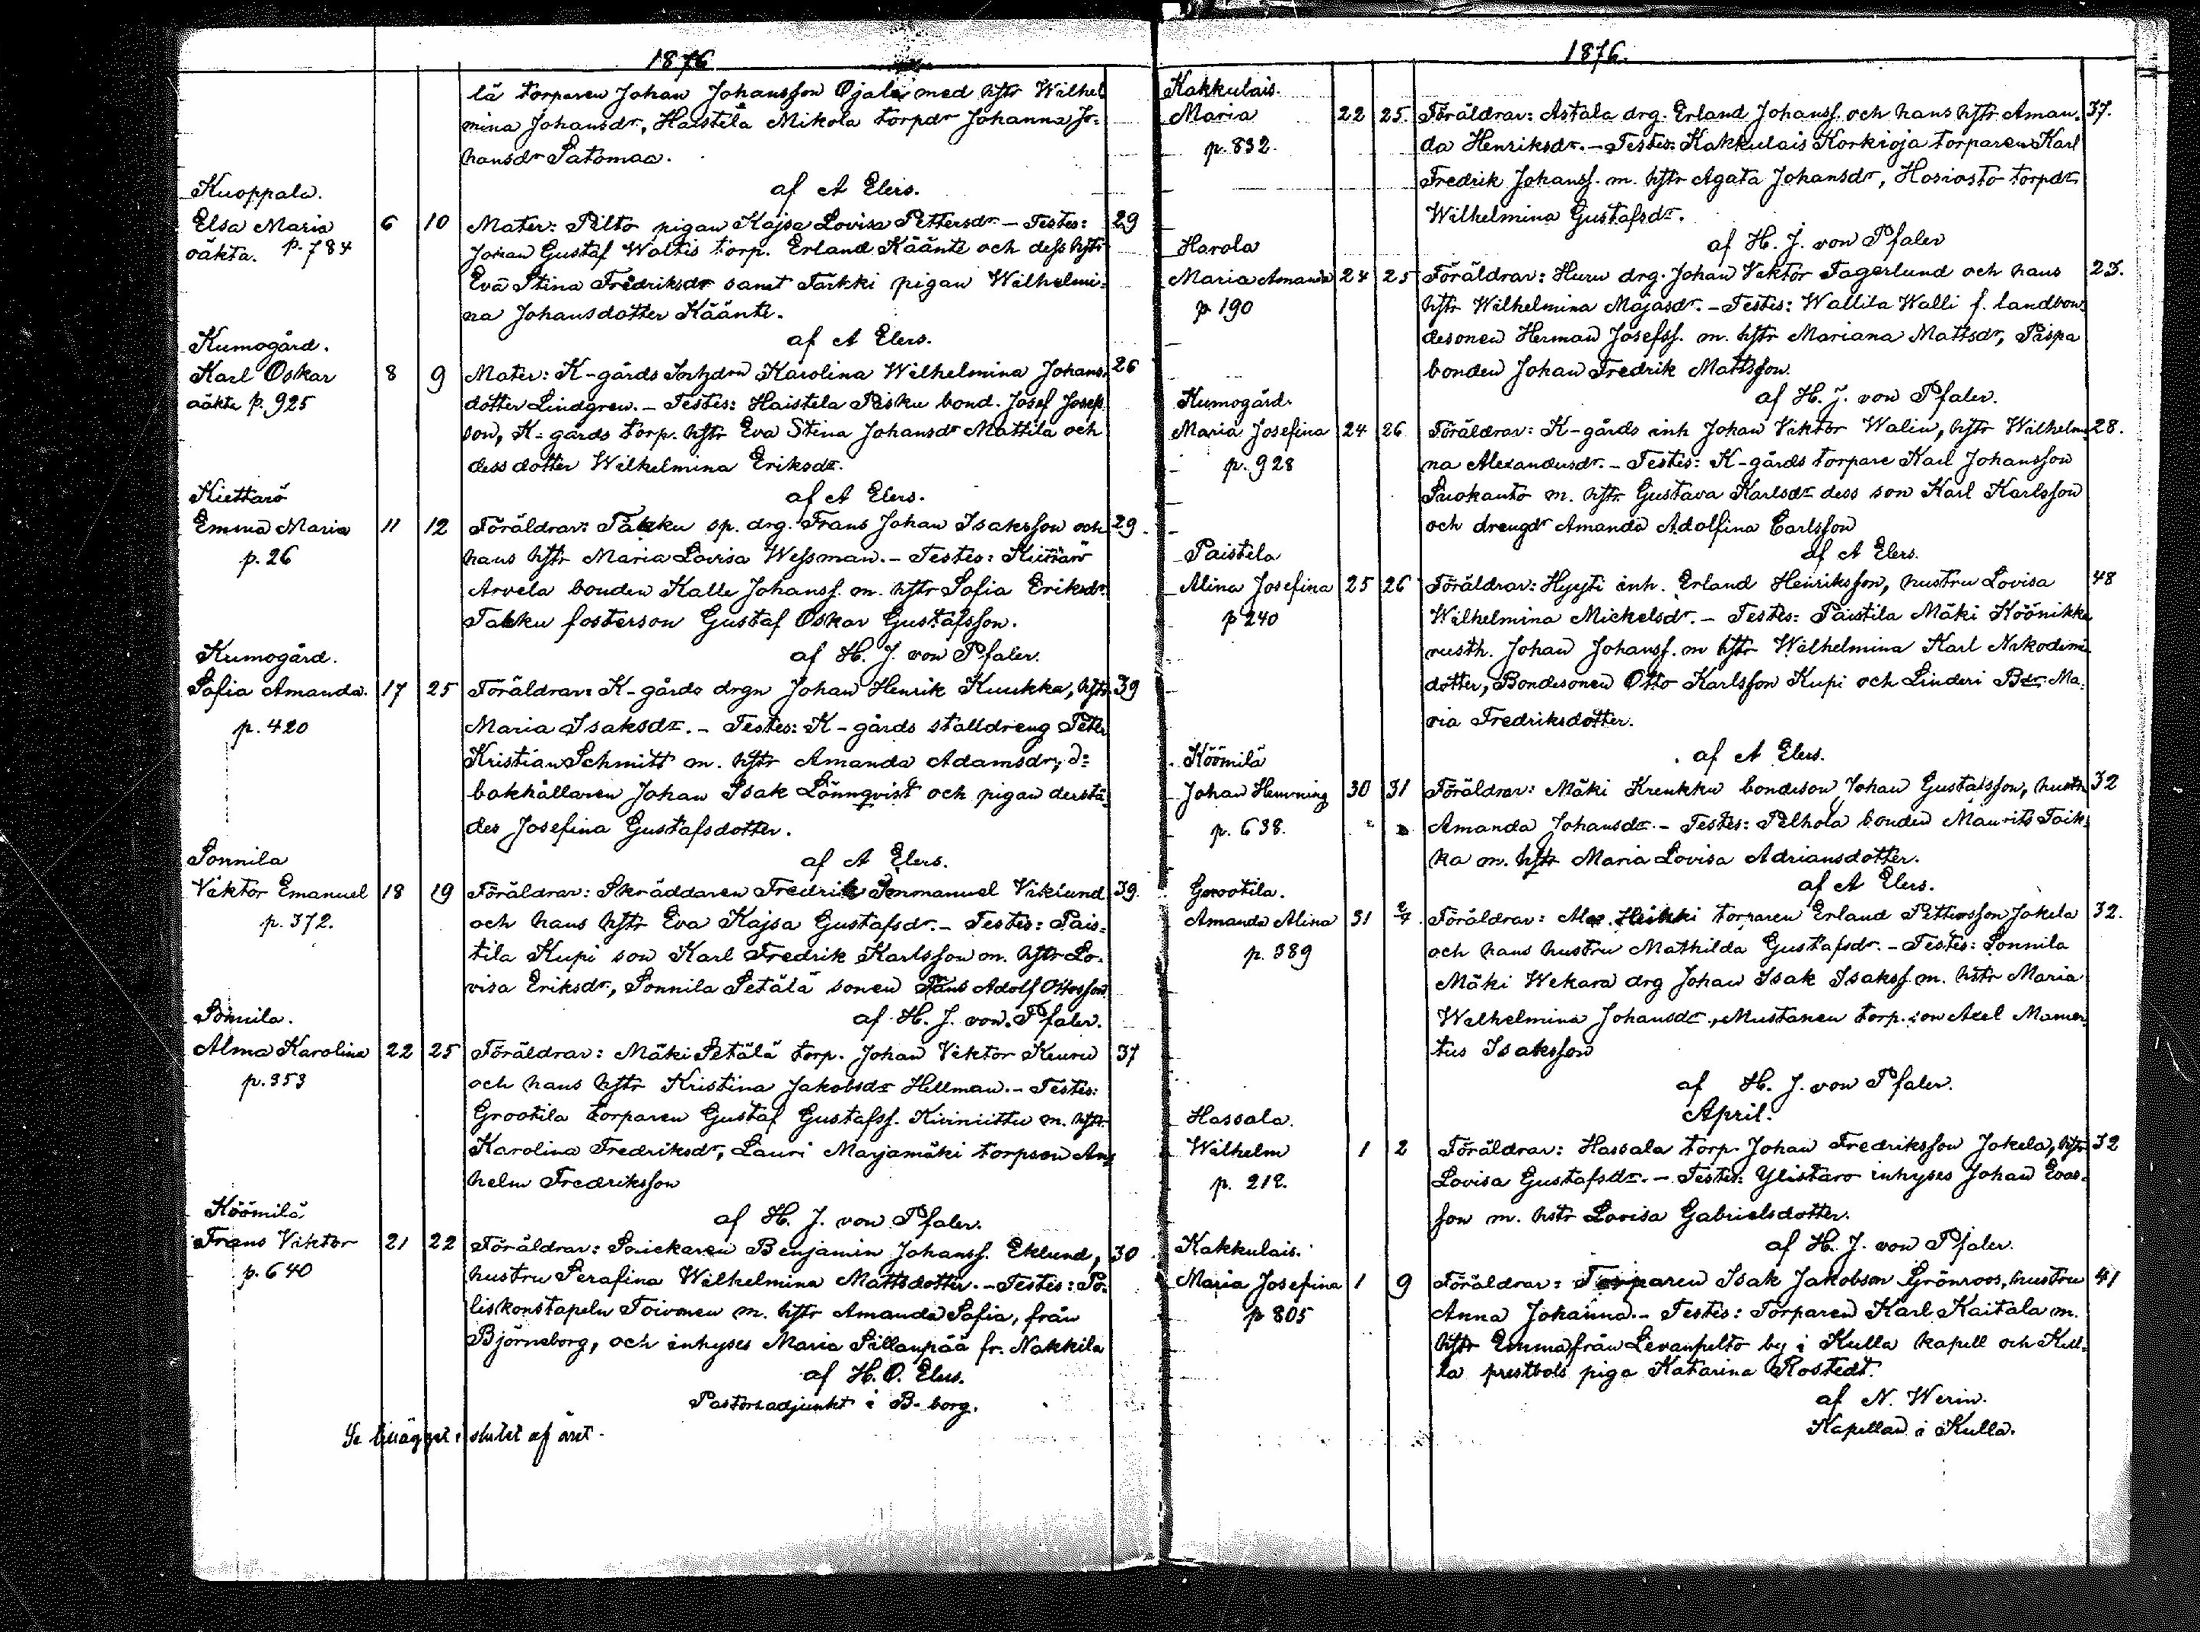 1876
lä torparen Johan Johansson Ojala med hstr Wilhel
mina Johansdr, Haistila Mikola torpdr Johanna Jo-
hansdr Satomaa.
af A Elers.
Kuoppala.
Elsa Maria 6 10 Mater: Pelto pigan Kajsa Lovisa Pettersdr - Testes: 29
oäkta. p. 784 Johan Gustaf Waltis torp. Erland Käänte och dess hstr
Eva Stina Fredriksdr samt Tarkki pigan Wilhelmi-
na Johansdotter Käänte.
af A Elers.
Kumogård.
Karl Oskar 8 9 Mater: K-gårds Karolina Wilhelmina Johans- 26
oäkta p. 925 dotter Lindgren. - Testes: Haistela Pesku bond. Josef Josefs
son, K-gårds torp. hstr Eva Stina Johansdr Mattila och
dess dotter Wilhelmina Eriksdr.
af A Elers.
Kiettarö
Emma Maria 11 12 Föräldrar: Takku sp. drg. Frans Johan Isaksson och 29.
p. 26 hans hstr Maria Lovisa Wessman. - Testes: Kiettarö
Arvela bonden Kalle Johanss. m. hstr Sofia Eriksdr.
Takku fosterson Gustaf Oskar Gustafsson.
af H. J. von Pfaler.
Kumogård.
Sofia Amanda. 17 25 Föräldrar: K-gårds drgn Johan Henrik Kuukka, hstr 39
p. 420 Maria Isaksdr. - Testes: K-gårds stalldreng Petter
Kristian Schmitt m. hstr Amanda Adamsdr, d:
bokhållaren Johan Isak Lönnqvist och pigan derstä-
des Josefina Gustafsdotter.
af A Elers.
Sonnila
Viktor Emanuel 18 19 Föräldrar: Skräddaren Fredrik Immanuel Viklund 39.
p. 372. och hans hstr Eva Kajsa Gustafsdr. - Testes: Pais-
tila Kupi son Karl Fredrik Karlsson m. hstr Lo-
visa Eriksdr, Sonnila Setälä sonen Frans Adolf Ottosson
af H. J. von Pfaler.
Sonnila.
Alma Karolina 22 25 Föräldrar: Mäki Setälä torp. Johan Viktor Keuru 37
p. 353 och hans hstr Kristina Jakobsdr Hellman. - Testes:
Grootila torparen Gustaf Gustafss. Kiviniittu m. hstr
Karolina Fredriksdr, Lauri Marjamäki torpson An-
helm Fredriksson
af H. J. von Pfaler.
Köömilä
Frans Viktor 21 22 Föräldrar: Snickaren Benjamin Johanss. Eklund, 30
p. 640 hustru Serafina Wilhelmina Mattsdotter. - Testes: Po-
liskonstapeln Toivonen m. hstr Amanda Sofia, från
Björneborg, och inhyses Maria Sillanpää fr. Nakkila
af H. O. Elers.
Pastorsadjunkt i B-borg.
Se tillägget i slutet af året.
1876.
Kakkulais.
Maria 22 25. Föräldrar: Astala drg. Erland Johanss. och hans hstr Aman- 37.
p. 832. da Henriksdr. - Testes: Kakkulais Korkioja torparen Karl
Fredrik Johanss. m. hstr Agata Johansdr, Hosiosto torpdr
Wilhelmina Gustafsdr.
af H. J. von Pfaler
Harola
Maria Amanda 24 25 Föräldrar: Huru drg. Johan Viktor Fagerlund och hans 23.
p. 190 hstr Wilhelmina Majasdr. - Testes: Wallila Walli f. landbon-
desonen Herman Josefss. m. hstr Mariana Mattsdr, Pispa
bonden Johan Fredrik Mattsson.
af H. J. von Pfaler.
Kumogård.
Maria Josefina 24 26 Föräldrar: K-gårds inh Johan Viktor Walin, hstr Wilhelmi- 28.
p. 928 na Alexandersdr. - Testes: K-gårds torpare Karl Johansson
Suokanto m. hstr Gustava Karlsdr dess son Karl Karlsson
och drengdr Amanda Adolfina Carlsson
af A Elers.
Paistela
Alina Josefina 25 26 Föräldrar: Hyyti inh. Erland Henriksson, hustru Lovisa 48
p. 240 Wilhelmina Mickelsdr. - Testes: Paistila Mäki Köönikkä
rusth. Johan Johanss. m hstr Wilhelmina Karl Nikodemi-
dotter, Bondesonen Otto Karlsson Kupi och Linderi Bdr Ma-
ria Fredriksdotter.
af A Elers.
Köömilä
Johan Hemming 30 31 Föräldrar: Mäki Krenkku bondeson Johan Gustafsson, hustr. 32
p. 638. Amanda Johansdr. - Testes: Pelhola bonden Maurits Toik-
ka m. hstr Maria Lovisa Adriansdotter.
af A Elers.
Grootila.
Amanda Alina 31 2/4. Föräldrar: Heikki torparen Erland Pettersson Jokela 32.
p. 389 och hans hustru Mathilda Gustafsdr. - Testes: Sonnila
Mäki Wekara drg Johan Isak Isakss. m. hstr Maria
Wilhelmina Johansdr, Mustanen torp. son Axel Mamer-
tus Isaksson
af H. J. von Pfaler.
April.
Hassala.
Wilhelm 1 2 Föräldrar: Hassala torp. Johan Fredriksson Jokela, hstr 32
p. 212. Lovisa Gustafsdr. - Testes: Ylistaro inhyses Johan Evas-
son m. hstr Lovisa Gabrielsdotter.
af H. J. von Pfaler.
Kakkulais.
Maria Josefina 1 9 Föräldrar: Torparen Isak Jakobson Grönroos, hustru 41
p 805 Anna Johanna. - Testes: Torparen Karl Kaitala m.
hstr Emma från Levanpelto by i Kulla kapell och Kul-
la prestbols piga Katarina Rostedt.
af N. Werin.
Kapellan i Kulla.